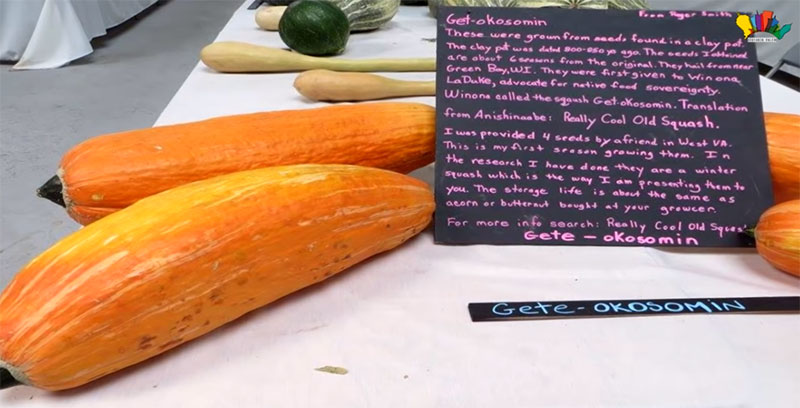 Get-okosomin
From Roger Smith
These were grown from seeds found in a clay pot.
The clay pot was dated 800-850 yo ago. The seeds I obtained
are about 6 seasons from the original. They hail from near
Green Bay, WI. They were first given to Winona
LaDuke, advocate for native food sovereignty.
Winona called the sqaush Get-okosomin. Translation
from Anishinaabe: Really Cool Old Squash.
I was provided 4 seeds by afriend in West VA.
This is my first sreson growing them. In
the research I have done they are a winter
squash which is the way I am presenting them to
you. The storage life is about the same as
acorn or butternut bought at your growcer.
For more info search: Really Cool Old
Gete - okosomin
Gete-OKOSOMIN